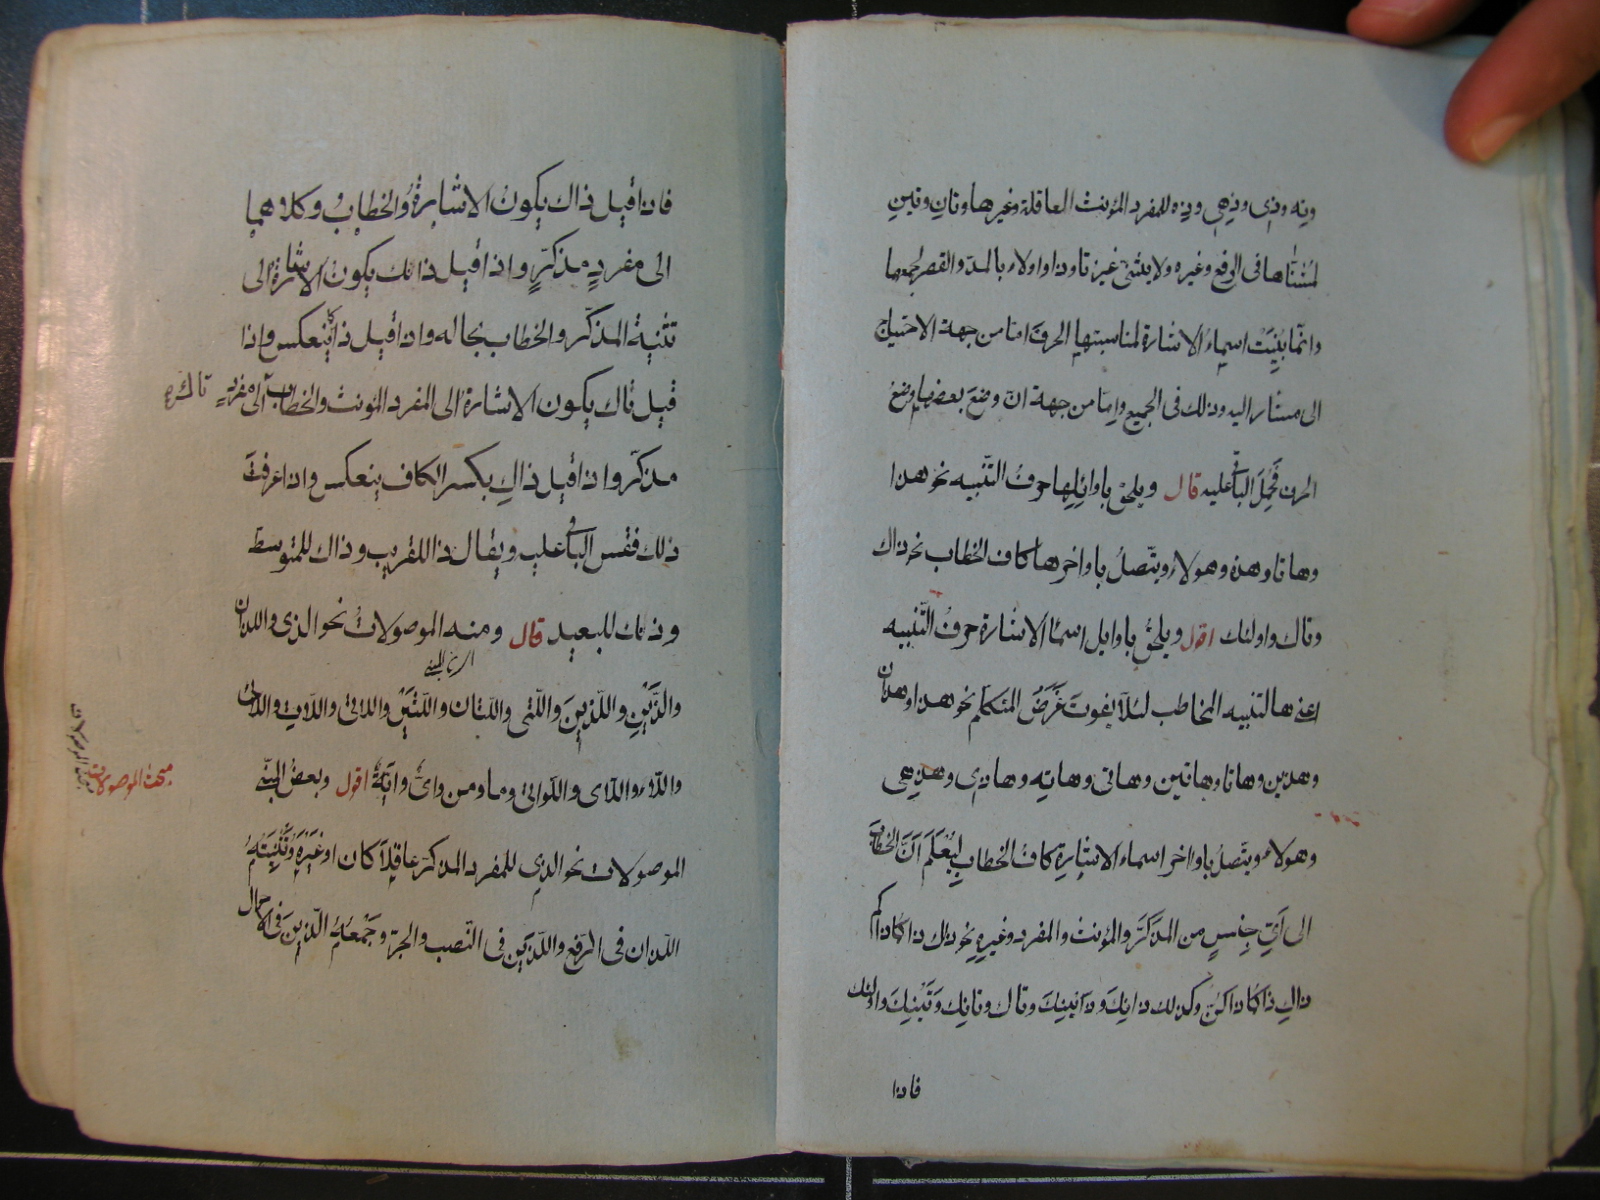 وته وذى وذهى وذه للمفرد المؤنث العاقلة وغيرها وتان وتين
لمثناها فى الرفع وغيره ولا يثنى غير تا وذا واولاء بالمد والقصر لجمعها
وانّما بُنِيَت اسماءُ الاشارة لمناسبتها الحرفَ امّا من جهة الاحتياج
الى مشار اليه وذلك فى الجميع وامّا من جهة انّ وضعَ بعضها وضع
الحرف فَحُمِلَ الباقى عليه قال ويلحق باوائِلِها حرفُ التنبيه نحو هذا
وهاتا وهذه وهولاء ويتّصلُ باواخرها كاف الخطاب نحو ذاك
وتاك واولئك اقول ويلحقُ باوايل اسماء الاشارة حرفُ التّنبيه
اعنى ها لتنبيه المخاطب لئلّا يفوتَ غَرَضُ المتكلّم نحو هذا وهذان
وهذين وهاتا وهاتين وهاتى وهاته وهاذى وهذهى
وهولاء ويتّصلُ باواخر اسماء الاشارة كافُ الخطاب ليُعْلَمَ اَنّ الخطابَ
الى اَىّ جِنسٍ من المذكّر والمؤنث والمفرد وغيره نحو ذاك ذاكما ذاكم
ذاكِ ذاكما ذاكنّ وكذلك ذانِكَ وذَيْنِكَ وتاك وتانِك وتَيْنِكَ واولئك
فاذا
فاذا قيل ذاك يكون الاشارةُ والخطابُ وكلاهما
الى مفردٍ مذكّرٍ واذا قيل ذانك يكون الاشارة الى
تثنية المذكّر والخطاب بحاله واذا قيل ذاكما ينعكس واذا
قيل تاك يكون الاشارة الى المفرد المؤنث والخطاب الى مفردٍ
مذكّر واذا قيل ذاكِ بكسر الكاف ينعكس واذا عرفتَ
ذلك فقس الباقى عليه ويقال ذا للقريب وذاك للمتوسط
وذلك للبعيد قال ومنه الموصولاتُ نحو الذى واللذان
اى من المبنى
والّذَيْنِ والّذِينَ والّتى واللتان واللتَيْنِ واللاتى واللات واللائى
واللاء واللاى واللواتى وما ومن واىّ وايّةُ اقول وبعضُ المبنى
مبحث الموصولات
الموصولات نحو الذى للمفرد المذكر عاقِلاً كان او غَيْرَهُ وتَثْنِيَتُهُ
اللذان فى الرفع واللذَين فى النّصب والجرّ وجَمْعُهُ الّذِينَ فى الاحوال